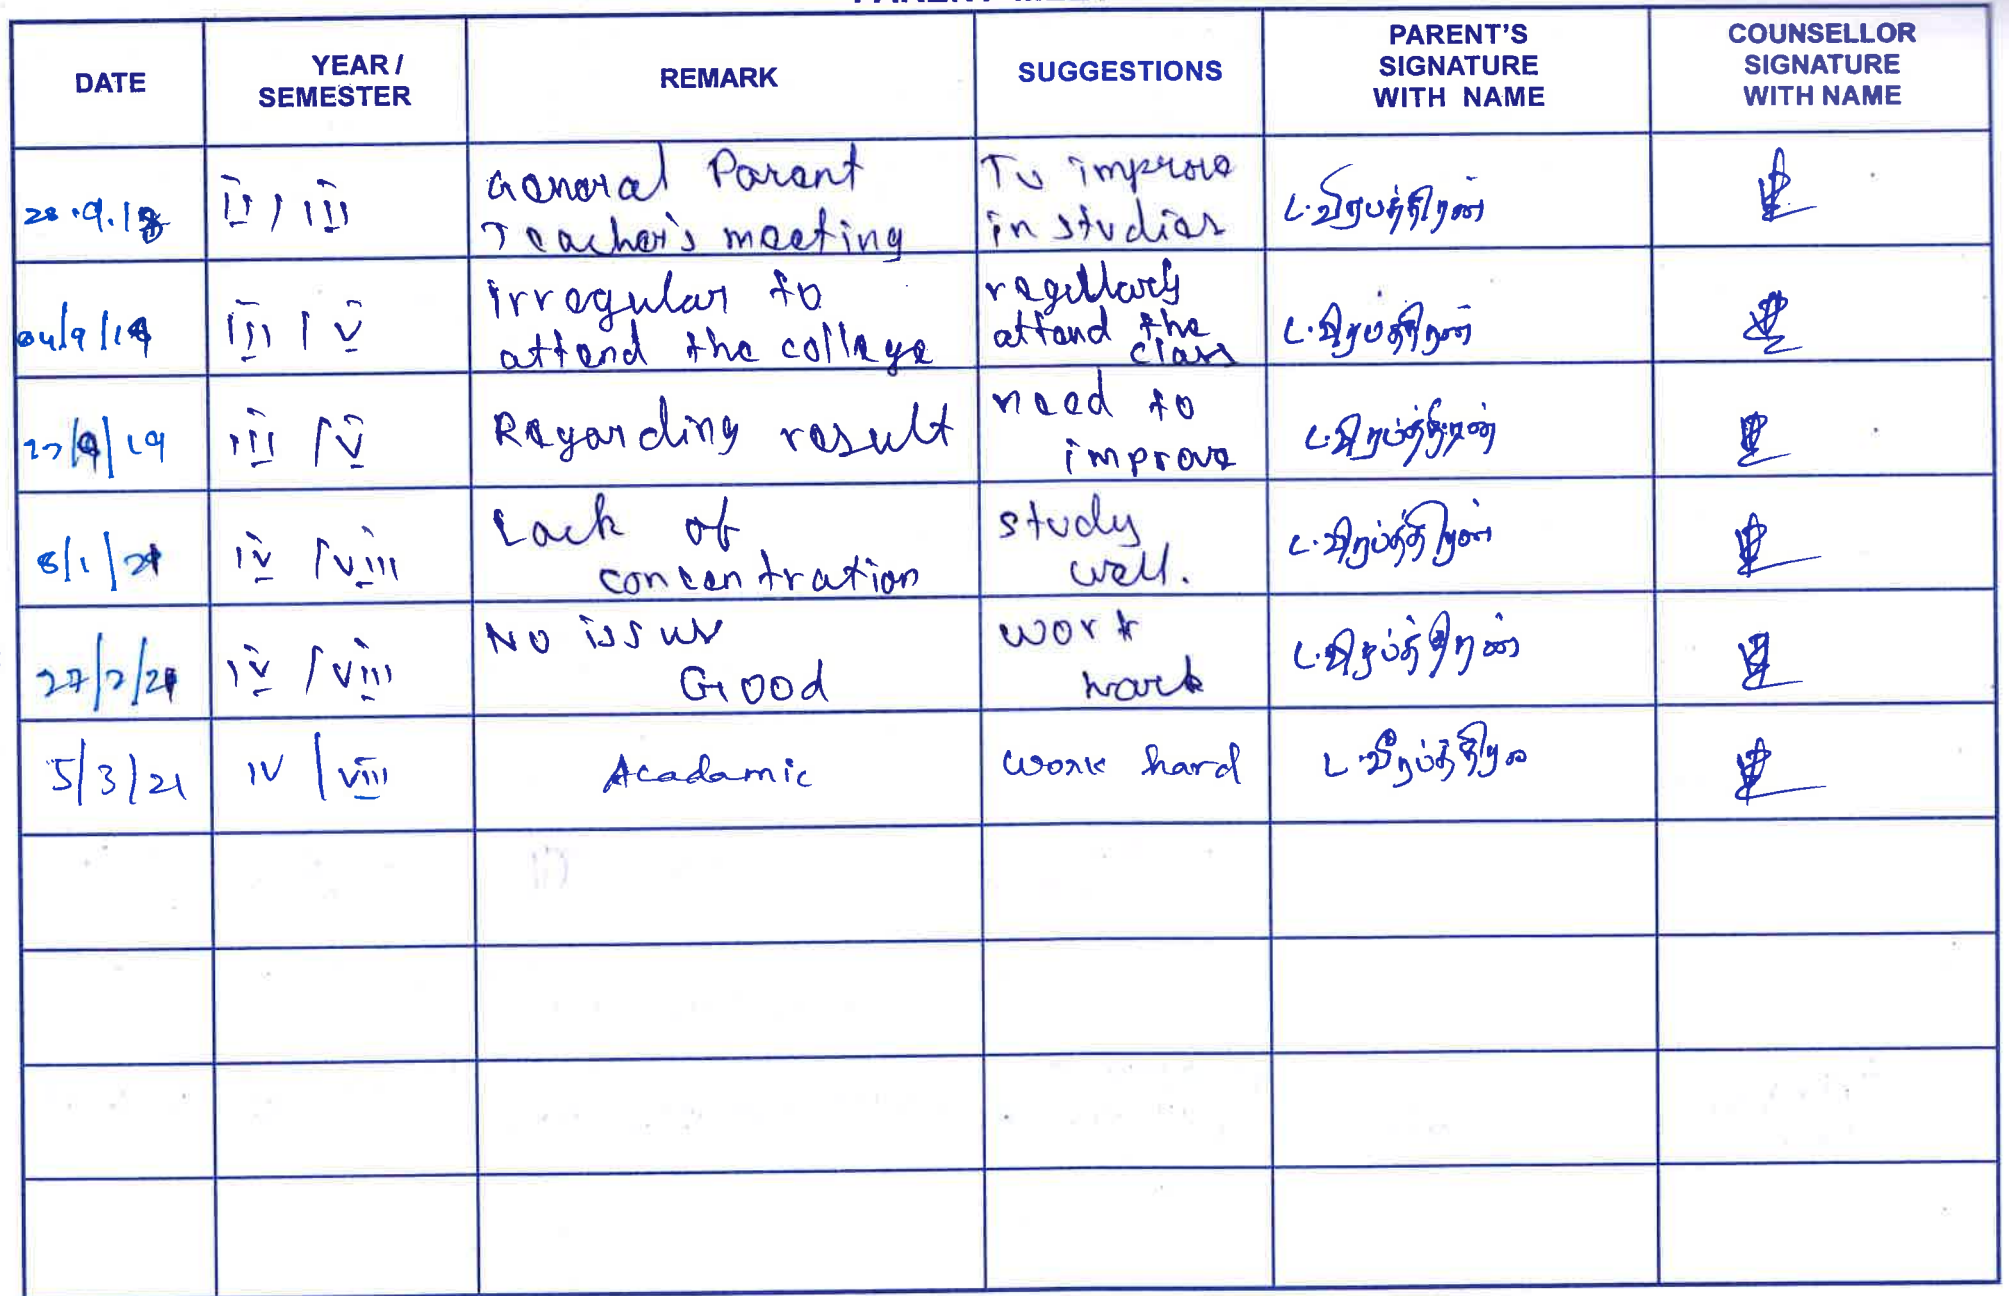 DATE
YEAR /
SEMESTER
REMARK
SUGGESTIONS
PARENT'S
SIGNATURE
WITH NAME
COUNSELLOR
SIGNATURE
WITH NAME
28.9.18
II / III
General Parent
Teacher's meeting
To improve
in studies
ட.வீரபத்திரன்
04/9/19
III / V
irregular to
attend the college
regullarly
attend the
class
ட.வீரபத்திரன்
27/9/19
III / V
Regarding result
need to
improve
ட.வீரபத்திரன்
8/1/21
IV / VIII
Lack of
concentration
study
well.
ட.வீரபத்திரன்
27/2/21
IV / VIII
No issue
Good
work
ட.வீரபத்திரன்
5/3/21
IV / VIII
Acadamic
work hard